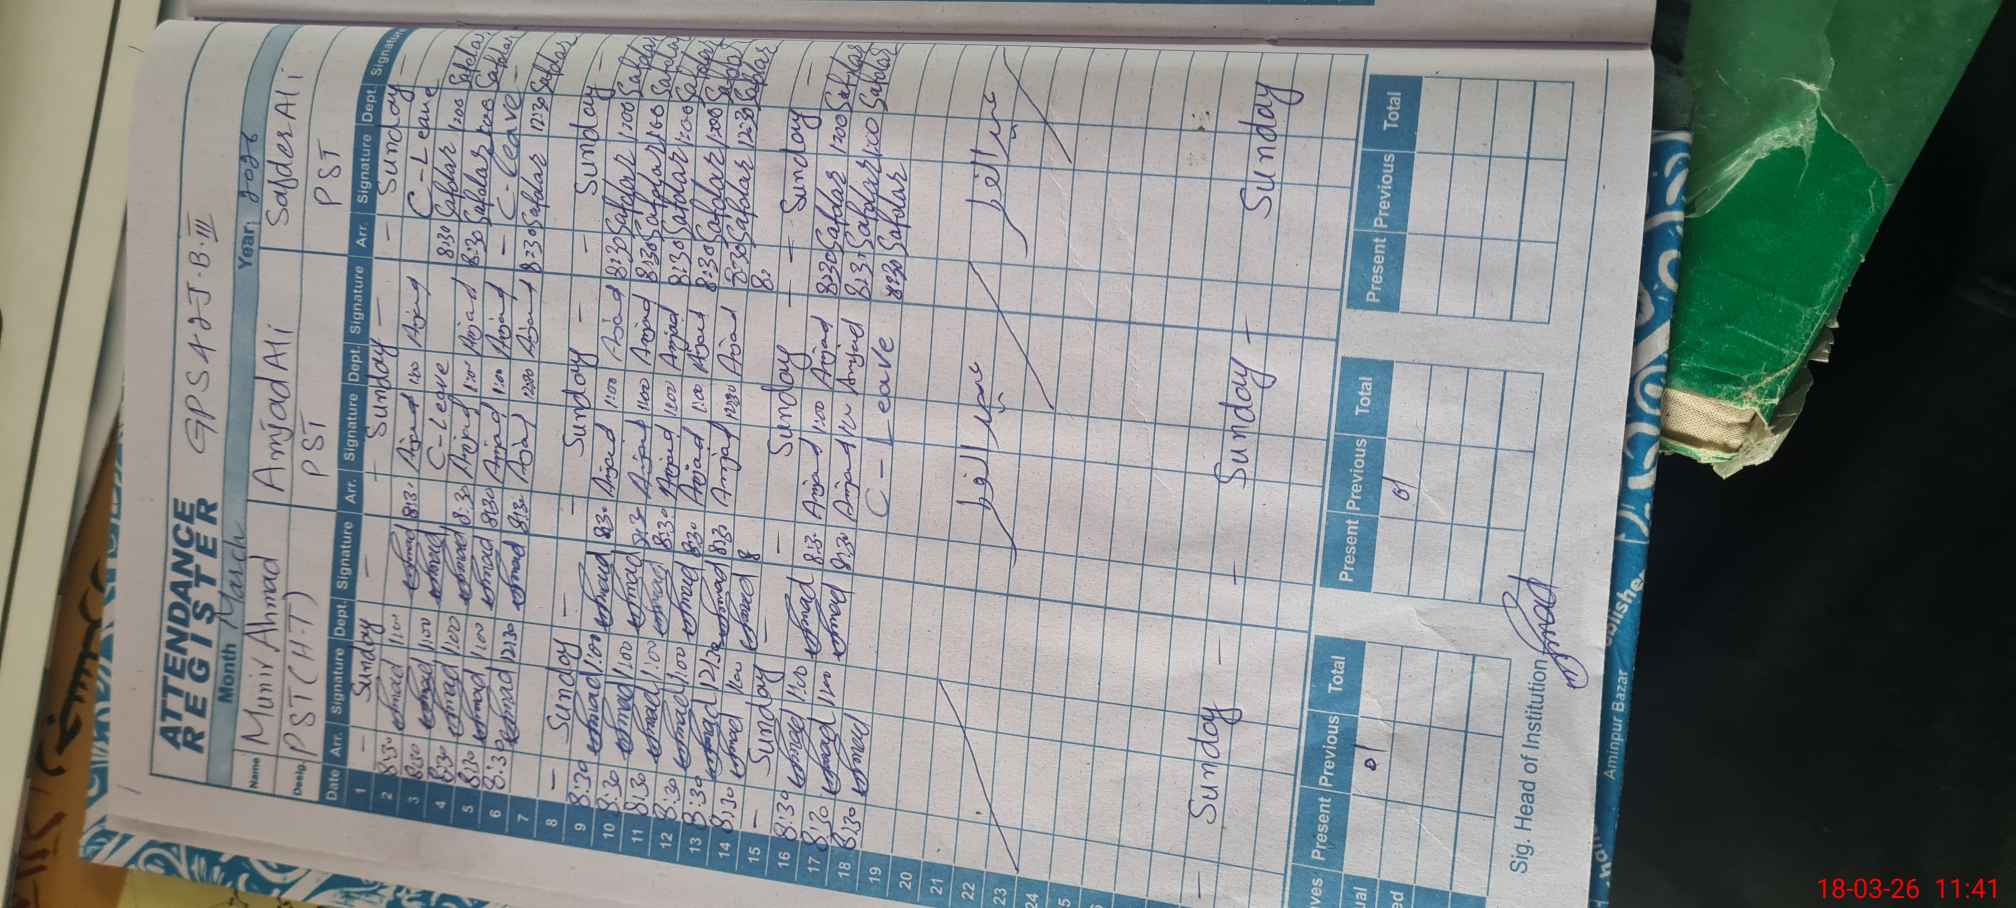 ATTENDANCE
REGISTER
GPS 42 J.B. III
Month March Year, 2026
Name Munir Ahmad Amjad Ali Safder Ali
Desig. PST (H.T) PST PST
Date Arr. Signature Dept. Signature Arr. Signature Dept. Signature Arr. Signature Dept. Signature
1 — Sunday — — Sunday — — Sunday —
2 8:30 Ahmad 1:00 Ahmad 8:30 Amjad 1:00 Amjad C-Leave
3 8:30 Ahmad 1:00 Ahmad C-Leave 8:30 Safdar 1:00 Safdar
4 8:30 Ahmad 1:00 Ahmad 8:30 Amjad 1:00 Amjad 8:30 Safdar 1:00 Safdar
5 8:30 Ahmad 1:00 Ahmad 8:30 Amjad 1:00 Amjad — C-leave —
6 8:30 Ahmad 12:30 Ahmad 8:30 Amjad 12:30 Amjad 8:30 Safdar 12:30 Safdar
7
8 — Sunday — — Sunday — — Sunday —
9 8:30 Ahmad 1:00 Ahmad 8:30 Amjad 1:00 Amjad 8:30 Safdar 1:00 Safdar
10 8:30 Ahmad 1:00 Ahmad 8:30 Amjad 1:00 Amjad 8:30 Safdar 1:00 Safdar
11 8:30 Ahmad 1:00 Ahmad 8:30 Amjad 1:00 Amjad 8:30 Safdar 1:00 Safdar
12 8:30 Ahmad 1:00 Ahmad 8:30 Amjad 1:00 Amjad 8:30 Safdar 1:00 Safdar
13 8:30 Ahmad 12:30 Ahmad 8:30 Amjad 12:30 Amjad 8:30 Safdar 12:30 Safdar
14 8:30 Ahmad 1:00 Ahmad 8 8:
15 — Sunday — — Sunday — — Sunday —
16 8:30 Ahmad 1:00 Ahmad 8:30 Amjad 1:00 Amjad 8:30 Safdar 1:00 Safdar
17 8:30 Ahmad 1:00 Ahmad 8:30 Amjad 1:00 Amjad 8:30 Safdar 1:00 Safdar
18 8:30 Ahmad C-Leave 8:30 Safdar
19
20
21
22
23
24
— Sunday — — Sunday — Sunday
Present Previous Total Present Previous Total Present Previous Total
01 01
Sig. Head of Institution Ahmad
Aminpur Bazar
18-03-26 11:41